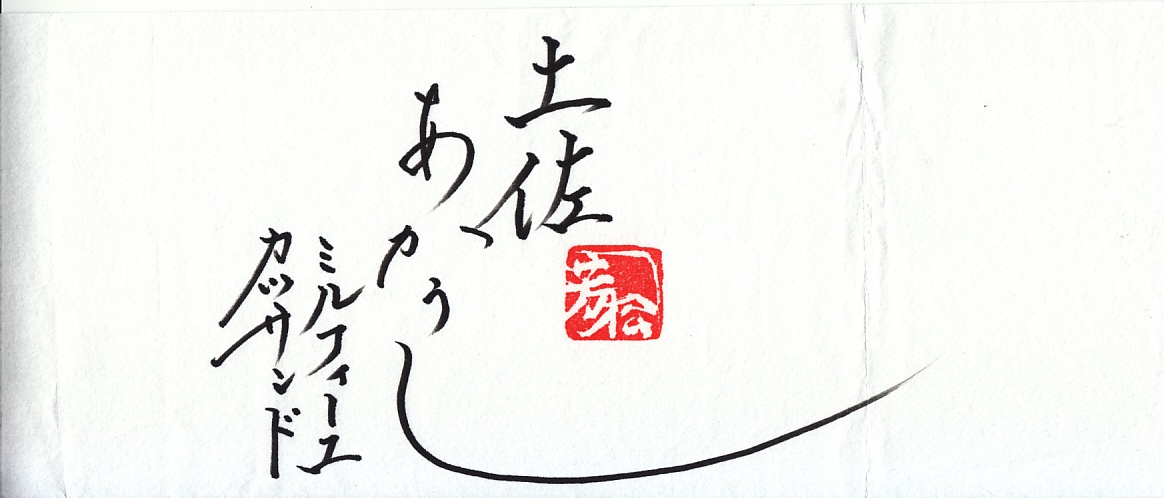 土佐
あかうし
ミルフィーユ
カッサンド